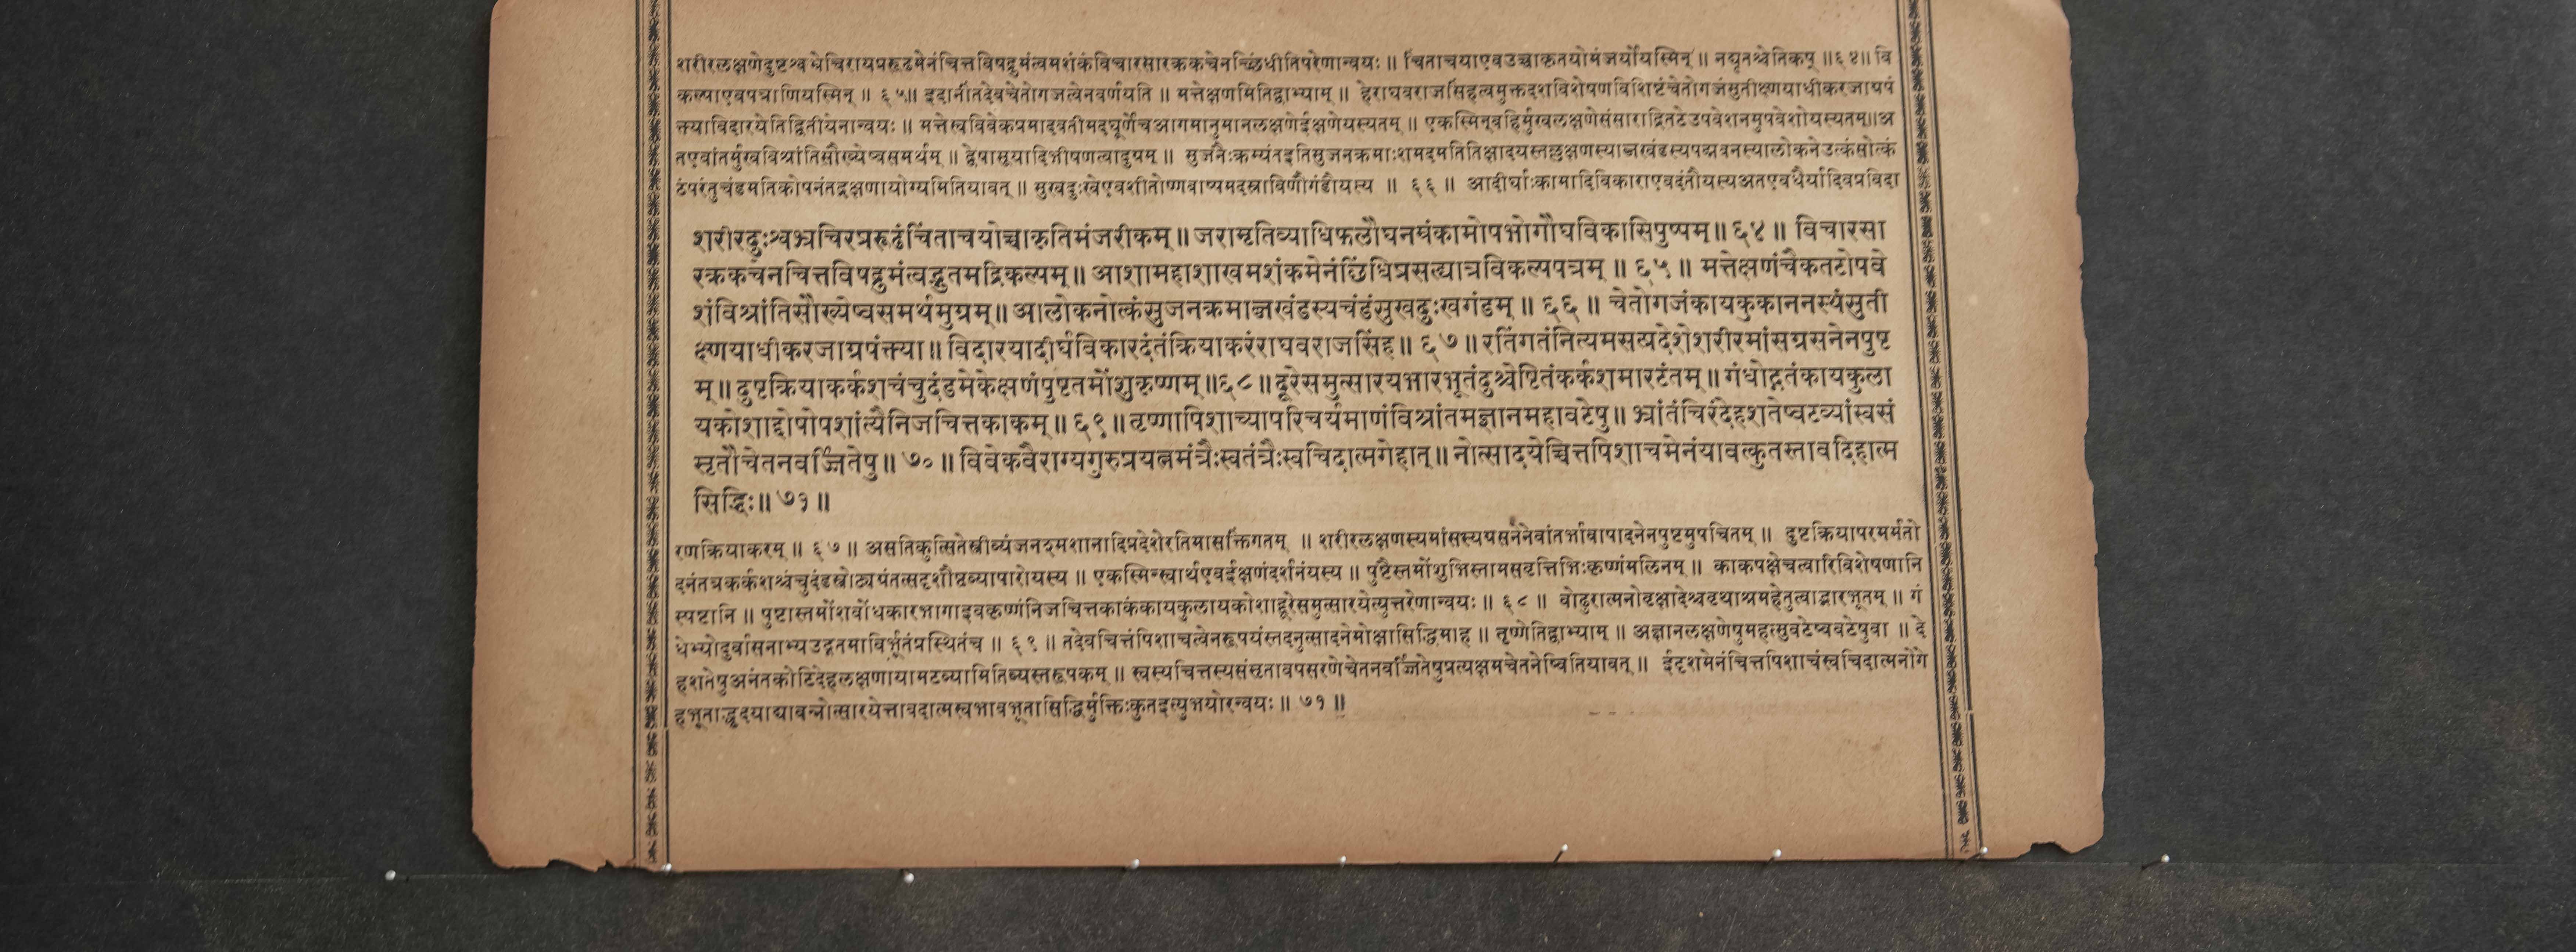 शरीरलक्षणेदुष्टश्वभ्रेचिरायप्ररूढमेनंचित्तविषद्रुमंत्वमशंकंविचारसारक्रकचेनच्छिंधीतिपरेणान्वयः ॥ चिंताचयाएवउच्चाकृतयोमंजर्योयस्मिन् ॥ नद्यृतश्चेतिकप् ॥६४॥ वि
कल्पाएवपत्राणियस्मिन् ॥ ६५॥ इदानींतदेवचेतोगजत्वेनवर्णयति ॥ मत्तेक्षणमितिद्वाभ्याम् ॥ हेराघवराजसिंहत्वमुक्तदशविशेषणविशिष्टंचेतोगजंसुतीक्ष्णयाधीकरजाग्रपं
क्त्याविदारयेतिद्वितीयेनान्वयः ॥ मत्तेस्वविवेकप्रमादवतीमदघूर्णेचआगमानुमानलक्षणेईक्षणेयस्यतम् ॥ एकस्मिन्बहिर्मुखलक्षणेसंसाराद्रितटेउपवेशनमुपवेशोयस्यतम्॥अ
तएवांतर्मुखविश्रांतिसौख्येष्वसमर्थम् ॥ द्वेषासूयादिभीषणत्वादुग्रम् ॥ सुजनैःक्रम्यंतइतिसुजनक्रमाःशमदमतितिक्षादयस्तल्लक्षणस्याब्जखंडस्यपद्मवनस्यालोकनेउत्कंसोत्कं
ठंपरंतुचंडमतिकोपनंतद्रक्षणायोग्यमितियावत् ॥ सुखदुःखेएवशीतोष्णबाष्पमदस्राविणौगंडौयस्य ॥ ६६ ॥ आदीर्घाःकामादिविकाराएवदंतौयस्यअतएवधैर्यादिवप्रविदा
शरीरदुःश्वभ्रचिरप्ररूढंचिंताचयोच्चाकृतिमंजरीकम् ॥ जरामृतिव्याधिफलौघनम्रंकामोपभोगौघविकासिपुष्पम् ॥ ६४ ॥ विचारसा
रक्रकचेनचित्तविषद्रुमंत्वद्भुतमद्रिकल्पम् ॥ आशामहाशाखमशंकमेनंछिंधिप्रसह्यात्रविकल्पपत्रम् ॥ ६५ ॥ मत्तेक्षणंचैकतटोपवे
शंविश्रांतिसौख्येष्वसमर्थमुग्रम् ॥ आलोकनोत्कंसुजनक्रमाब्जखंडस्यचंडंसुखदुःखगंडम् ॥ ६६ ॥ चेतोगजंकायकुकाननस्थंसुती
क्ष्णयाधीकरजाग्रपंक्त्या ॥ विदारयादीर्घविकारदंतंक्रियाकरंराघवराजसिंह ॥ ६७ ॥ रतिंगतंनित्यमसत्प्रदेशेशरीरमांसग्रसनेनपुष्ट
म् ॥ दुष्टक्रियाकर्कशचंचुदंडमेकेक्षणंपुष्टतमोंशुकृष्णम् ॥६८॥ दूरेसमुत्सारयभारभूतंदुश्चेष्टितंकर्कशमारटंतम् ॥ गंधोद्गतंकायकुला
यकोशाद्दोषोपशांत्यैनिजचित्तकाकम् ॥ ६९ ॥ तृष्णापिशाच्यापरिचर्यमाणंविश्रांतमज्ञानमहावटेषु ॥ भ्रांतंचिरंदेहशतेष्वटव्यांस्वसं
सृतौचेतनवर्ज्जितेषु ॥ ७० ॥ विवेकवैराग्यगुरुप्रयत्नमंत्रैःस्वतंत्रैःस्वचिदात्मगेहात् ॥ नोत्सादयेच्चित्तपिशाचमेनंयावत्कुतस्तावदिहात्म
सिद्धिः ॥ ७१ ॥
रणक्रियाकरम् ॥ ६७ ॥ असतिकुत्सितेस्त्रीव्यंजनश्मशानादिप्रदेशेरतिमासक्तिंगतम् ॥ शरीरलक्षणस्यमांसस्यग्रसनेनेवांतर्भावापादनेनपुष्टमुपचितम् ॥ दुष्टक्रियापरमर्मतो
दनंतत्रकर्कशश्चंचुदंडस्त्रोट्यग्रंतत्सदृशौष्ठव्यापारोयस्य ॥ एकस्मिन्स्वार्थएवईक्षणंदर्शनंयस्य ॥ पुष्टैस्तमोंशुभिस्तामसवृत्तिभिःकृष्णंमलिनम् ॥ काकपक्षेचत्वारिविशेषणानि
स्पष्टानि ॥ पुष्टास्तमोंशवोंधकारभागाइवकृष्णंनिजचित्तकाकंकायकुलायकोशाद्दूरेसमुत्सारयेत्युत्तरेणान्वयः ॥ ६८ ॥ वोढुरात्मनोवृक्षादेश्चवृथाश्रमहेतुत्वाद्भारभूतम् ॥ गं
धेभ्योदुर्वासनाभ्यउद्गतमाविर्भूतंप्रस्थितंच ॥ ६९ ॥ तदेवचित्तंपिशाचत्वेनरूपयंस्तदनुत्सादनेमोक्षासिद्धिमाह ॥ तृष्णेतिद्वाभ्याम् ॥ अज्ञानलक्षणेषुमहत्सुवटेष्ववटेषुवा ॥ दे
हशतेषुअनंतकोटिदेहलक्षणायामटव्यामितिव्यस्तरूपकम् ॥ स्वस्यचित्तस्यसंसृतावपसरणेचेतनवर्ज्जितेषुप्रत्यक्षमचेतनेष्वितियावत् ॥ ईदृशमेनंचित्तपिशाचंस्वचिदात्मनोगे
हभूताद्धृदयाद्यावन्नोत्सारयेत्तावदात्मस्वभावभूतासिद्धिर्मुक्तिःकुतइत्युभयोरन्वयः ॥ ७१ ॥